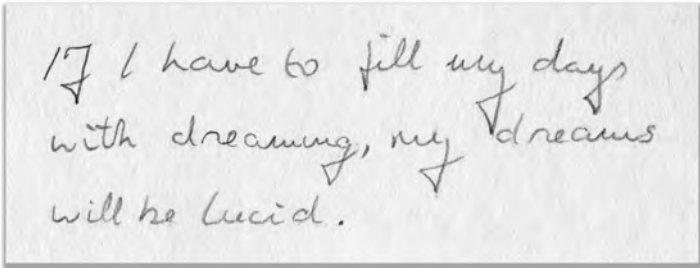 If I have to fill my days
with dreaming, my dreams
will be lucid.